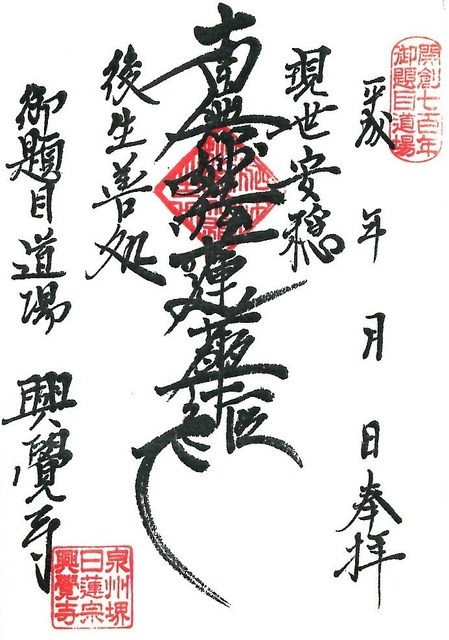 開創七百年
御題目道場
平成 年 月 日 奉拝
現世安穏
南無妙法蓮華経
後生善処
御題目道場 興覺寺
泉州堺
日蓮宗
興覺寺